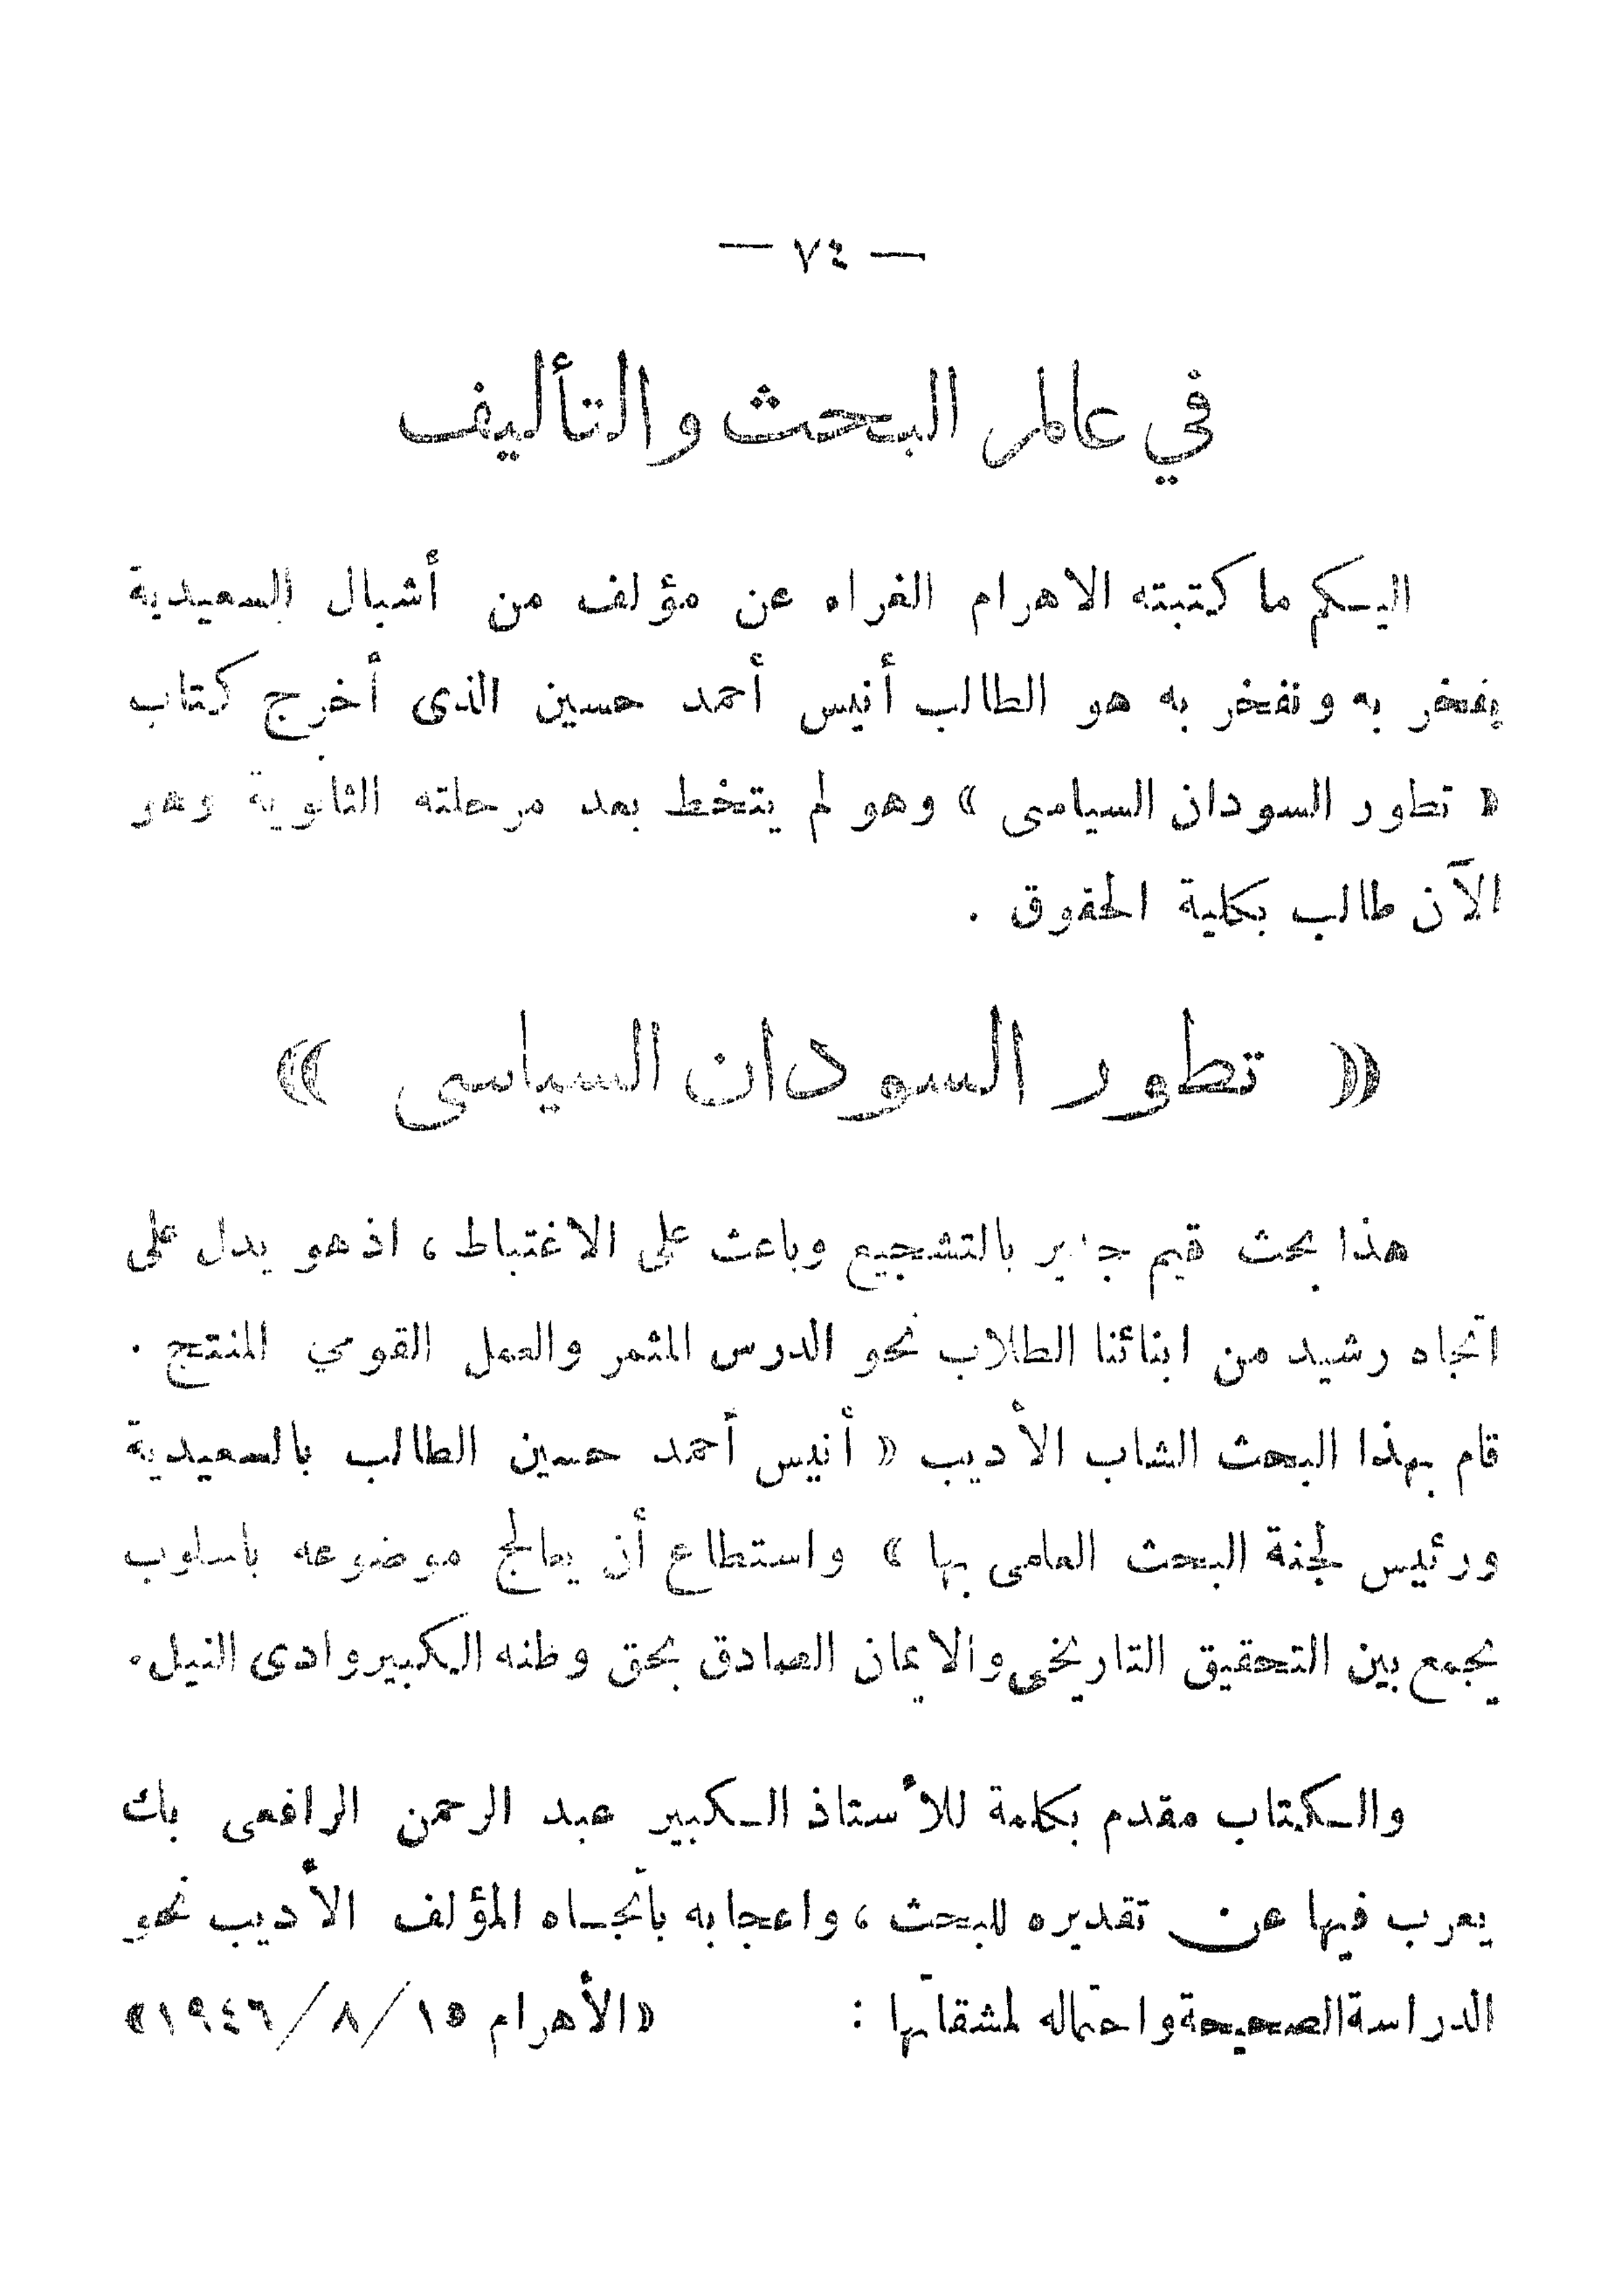 — ٧٤ —
في عالم البحث والتأليف
اليكم ما كتبته الاهرام الغراء عن مؤلف من أشبال السعيدية
يفخر به ونفخر به هو الطالب أنيس أحمد حسين الذى أخرج كتاب
« تطور السودان السياسى » وهو لم يتخط بعد مرحلته الثانوية وهو
الآن طالب بكلية الحقوق .
« تطور السودان السياسى »
هذا بحث قيم جدير بالتشجيع وباعث على الاغتباط ، اذ هو يدل على
اتجاه رشيد من ابنائنا الطلاب نحو الدرس المثمر والعمل القومي المنتج .
قام بهذا البحث الشاب الأديب « أنيس أحمد حسين الطالب بالسعيدية
ورئيس لجنة البحث العلمى بها » واستطاع أن يعالج موضوعه باسلوب
يجمع بين التحقيق التاريخى والايمان الصادق بحق وطنه الكبير وادى النيل .
والكتاب مقدم بكلمة للأستاذ الكبير عبد الرحمن الرافعى بك
يعرب فيها عن تقديره للبحث ، واعجابه باتجاه المؤلف الأديب نحو
الدراسة الصحيحة واحتماله لمشقاتها : «الأهرام ١٥/٨/١٩٤٦»